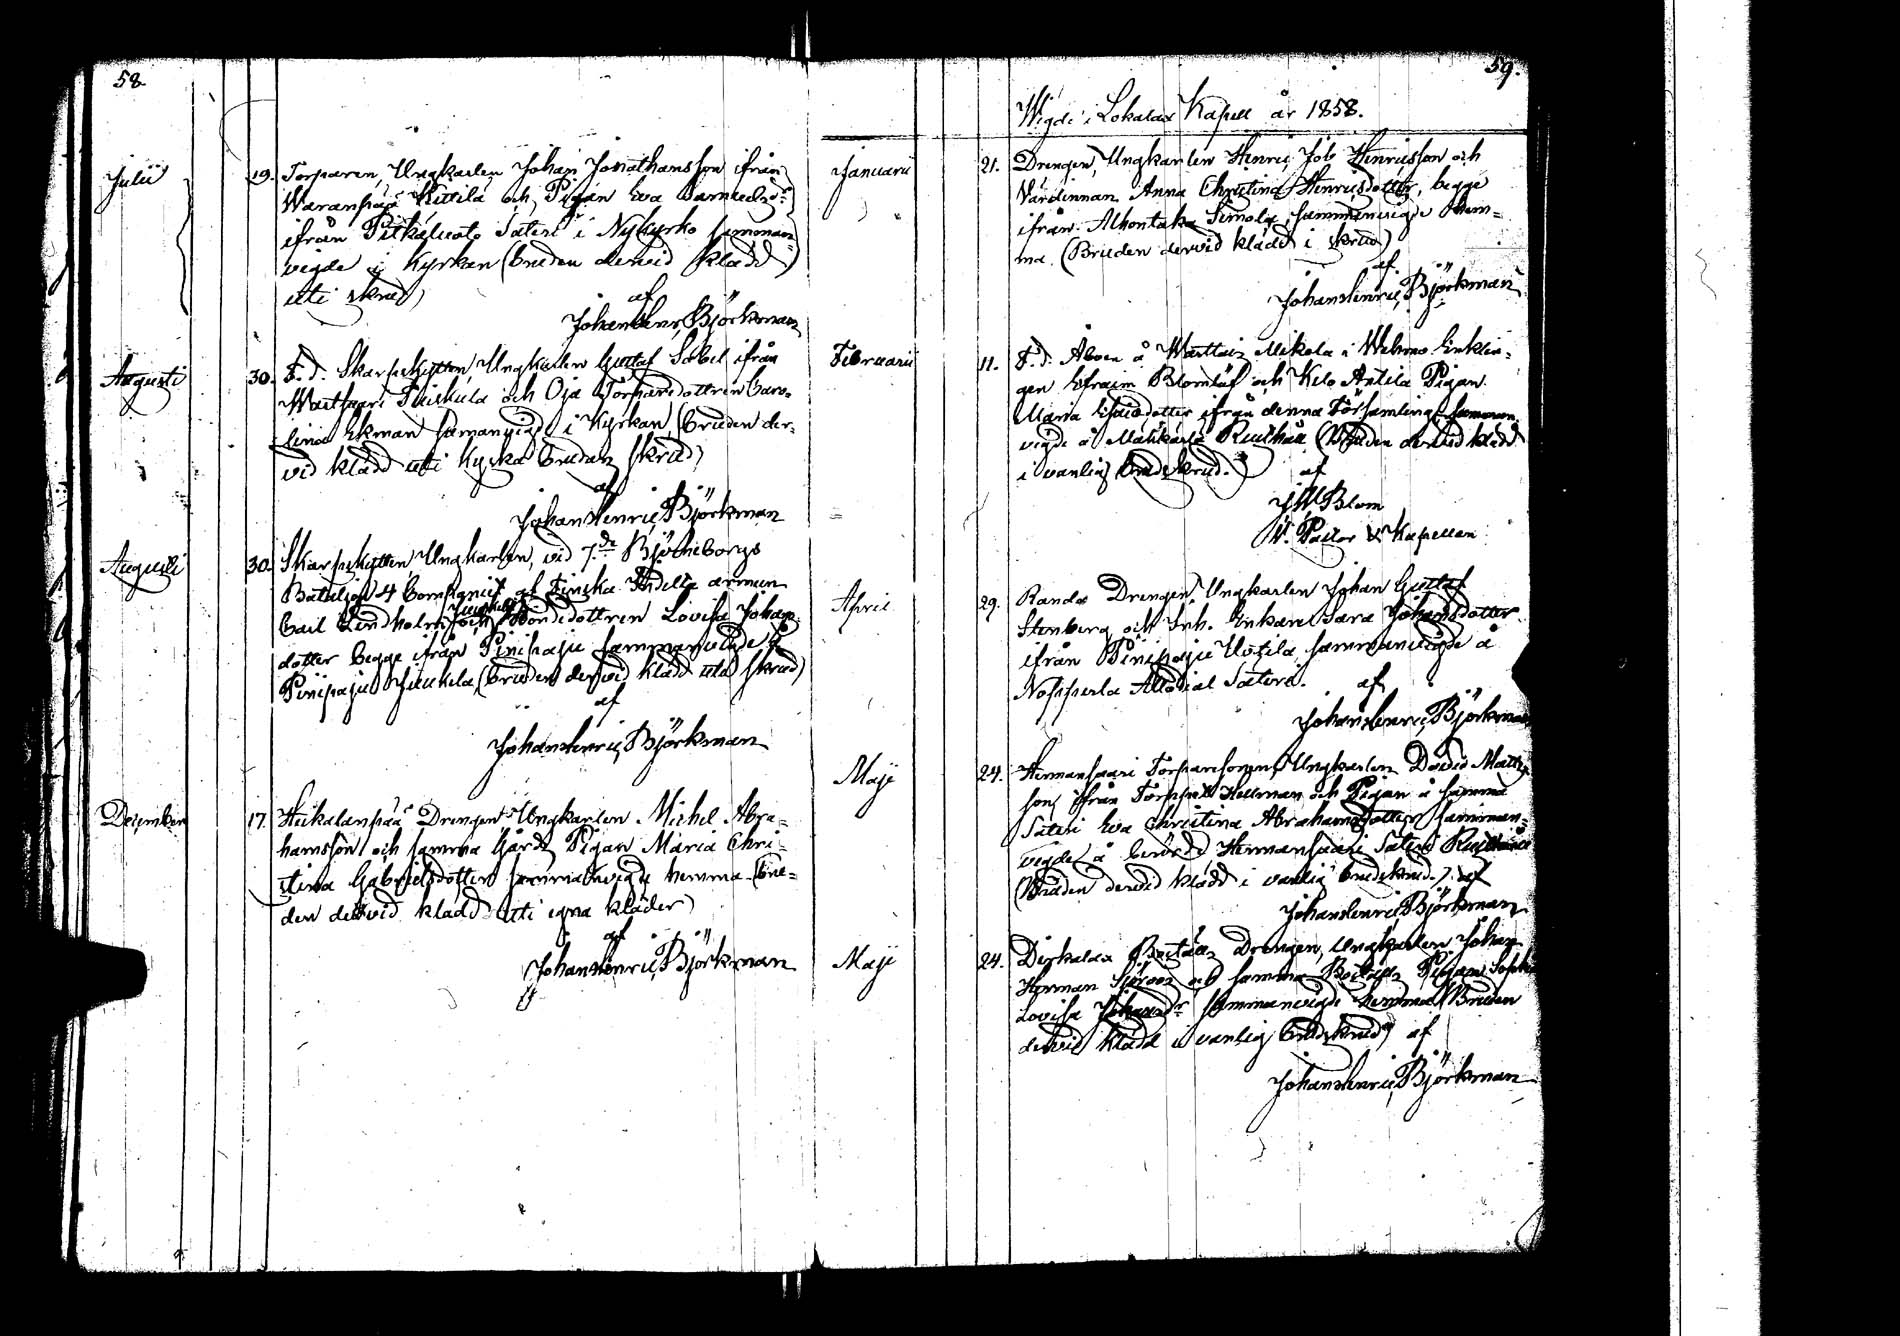 58
Julii 19. Torparen, Ungkarlen Johan Jonathansson ifrån
Waranpää Kittilä och Pigan Eva Samuelsdr
ifrån Pitkäluoto Säteri i Nykyrko samman-
vigde i Kyrkan (Bruden dervid klädd
uti skrud)
af
Johan Henric Björkman
Augusti 30. F. d. Skarpskytten, Ungkarlen Gustaf Sabel ifrån
Warthsari och Oja Torparedottren Caro-
lina Ekman sammanvigde i Kyrkan (Bruden der-
vid klädd uti Kyrka brudan skrud)
af
Johan Henric Björkman
Augusti 30. Skarpskytten Ungkarlen, vid 7.de Björneborgs
Bataljon 4 Compagniet af Finska Indelta armeen
Carl Lindholm och Bondedottren Lovisa Johans-
dotter begge ifrån Pinipaju sammanvigde å
Pinipaju Juukela (Bruden dervid klädd uta skrud)
af
Johan Henric Björkman
December 17. Hukalanpää Drengen Ungkarlen Michel Abra-
hamsson och samma Gårds Pigan Maria Chri-
stina Gabrielsdotter sammanvigde hemma (Bru-
den dervid klädd uti egna kläder)
af
Johan Henric Björkman
59.
Wigde i Lokalax Kapell år 1858.
Januarii 21. Drengen, Ungkarlen Henric Job Henricsson och
Värdinnan Anna Christina Henricsdotter, begge
ifrån Alhontaka Simola, sammanvigde hem-
ma. (Bruden dervid klädd i skrud)
af
Johan Henric Björkman
Februarii 11. F. d. Åboen å Warttais Mikola i Wehmo Enklin-
gen Efraim Blomlöf och Kelo Antila Pigan
Maria Esaiedotter ifrån denna Församling samman-
vigde å Matikais Rusthåll (Bruden dervid klädd
i vanlig brudskrud.)
af
J W Blom
V. Pastor & Kapellan
April 29. Randa Drengen, Ungkarlen Johan Gustaf
Stenberg och Inh. Enkan Sara Johansdotter
ifrån Pinipaju Uotila sammanvigde å
Nopperla Allodial Säteri. af
Johan Henric Björkman
Maji 24. Hermansaari Torparesonen, Ungkarlen David Matts-
son ifrån Torpet Hellman och Pigan å samma
Säteri Eva Christina Abrahamsdotter samman-
vigde å berörde Hermansaari Säteri Rusthåll
(Bruden dervid klädd i vanlig brudskrud.) af
Johan Henric Björkman
Maji 24. Dirkalax Boställs Drengen, Ungkarlen Johan
Herman Sjöroos och samma Boställs Pigan Sophia
Lovisa Johansdr sammanvigde hemma (Bruden
dervid klädd i vanlig brudskrud) af
Johan Henric Björkman